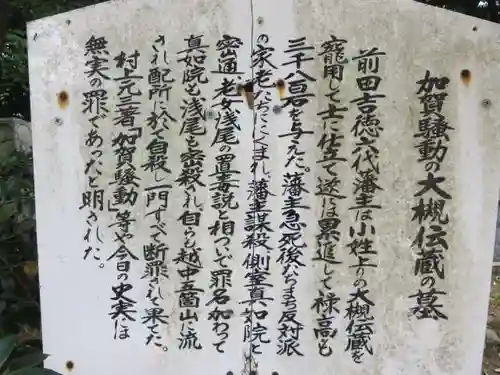 加賀騒動の大槻伝蔵の墓
前田吉徳六代藩主は小姓上りの大槻伝蔵を
寵用して士に仕立て遂には累進して禄高も
三千八百石を与えた。藩主急死後たちまち反対派
の家老たちににくまれ、藩主謀殺、側室真如院と
密通、老女浅尾の置毒説と相ついで罪名加わって
真如院も浅尾も密殺され、自らも越中五箇山に流
され配所に於て自殺し一門すべて断罪され果た。
村上元三著「加賀騒動」等や今日の史実は
無実の罪であったと明された。